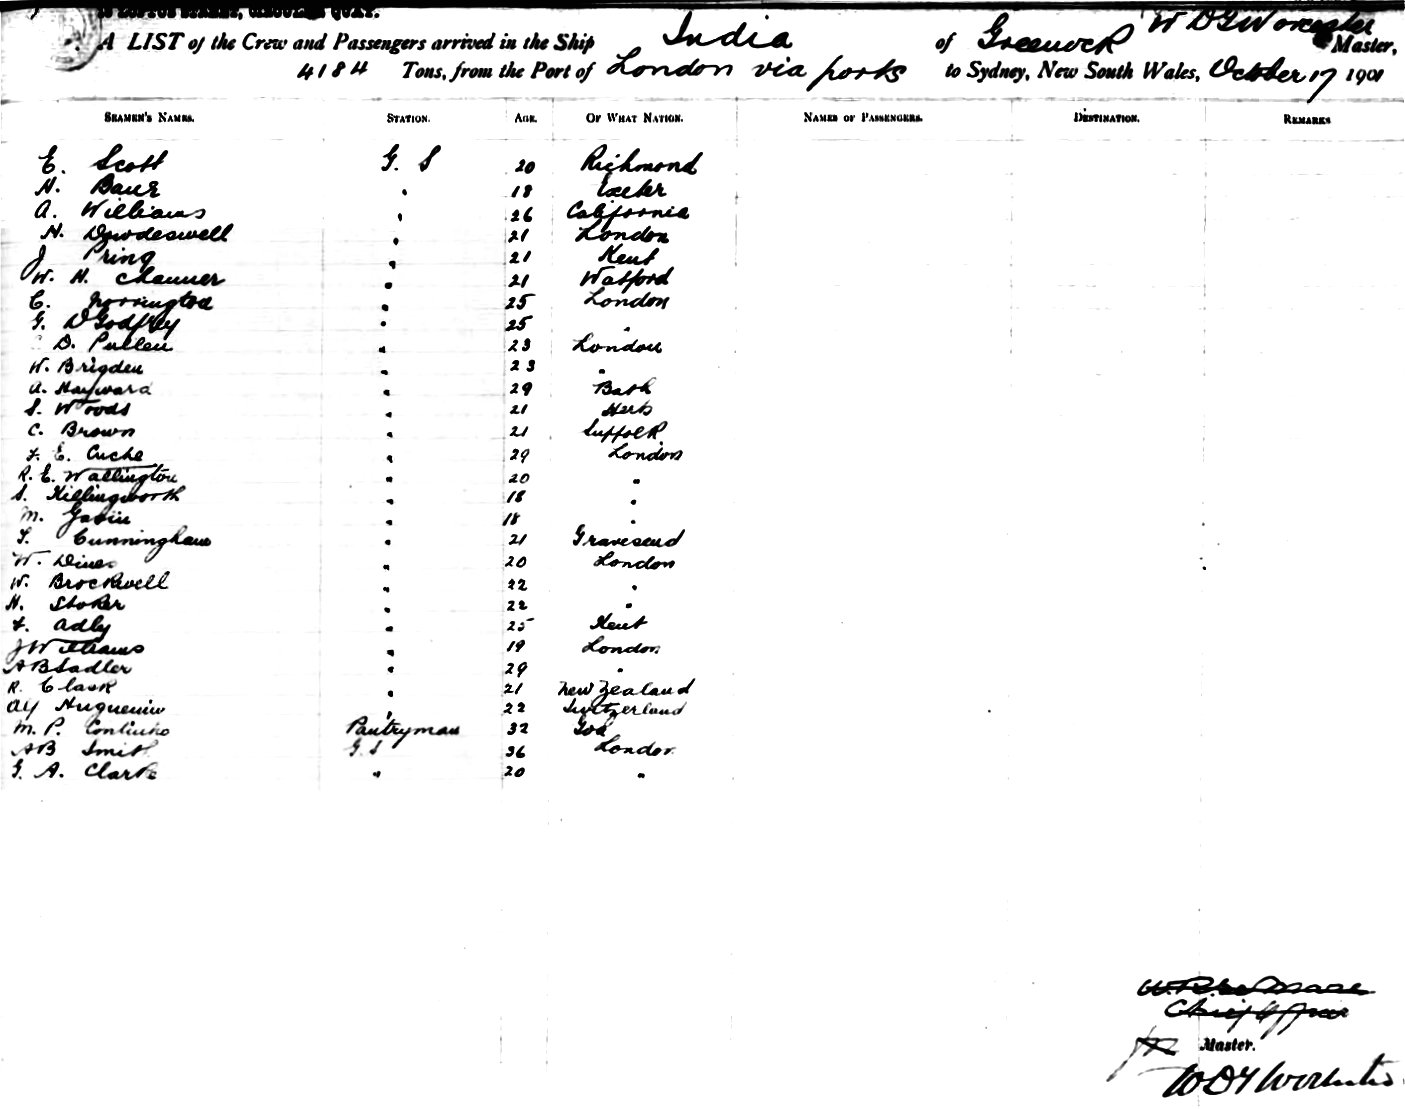 CIRCULAR QUAY.
A LIST of the Crew and Passengers arrived in the Ship India of Greenock W D G Worcester Master,
4184 Tons, from the Port of London via ports to Sydney, New South Wales, October 17 1901
SEAMEN'S NAMES. STATION. AGE. OF WHAT NATION. NAMES OF PASSENGERS. DESTINATION. REMARKS
E. Scott G. S 20 Richmond
H. 18 Exeter
A. Williams " 26 California
H. Dowdeswell " 21 London
J Pring " 21 Kent
W. H. Channer " 21 Watford
C. Norrington " 25 London
G. D Godfrey " 25 "
D. Pullen " 23 London
W. Brigden " 23 "
A. Hayward " 29 Bath
S. Woods " 21 Herts
C. Brown " 21 Suffolk
F. E. Cuche " 29 London
R. E. Wallington " 20 "
S. Killingworth " 18 "
M. Gavin " 18 "
T. Cunningham " 21 Gravesend
W. Dines " 20 London
W. Brockwell " 22 "
H. Stoker " 22 "
F. Adly " 25 Kent
J Williams " 19 London
A B Sadler " 29 "
R. Clark " 21 New Zealand
A Y Huguenin " 22 Switzerland
M. P. Continho Pantryman 32 Goa
A B Smith G. S 36 London
G. A. Clarke " 20 "
Chief Officer
Master.
W D G Worcester